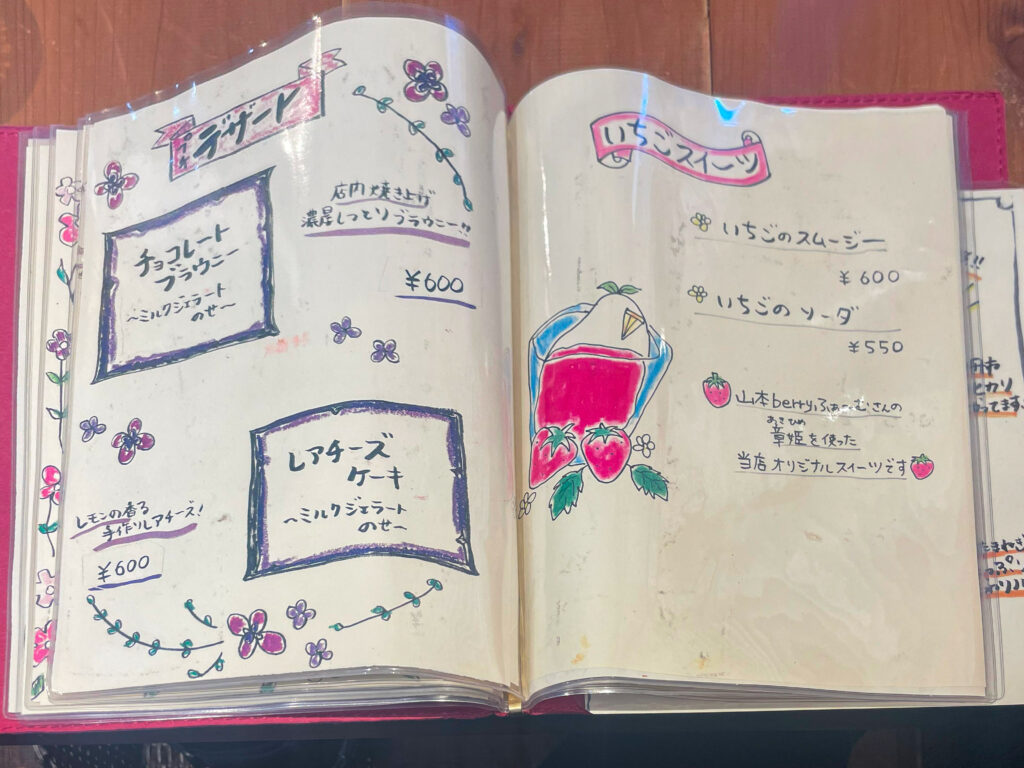 デザート
チョコレート
ブラウニー
～ミルクジェラート
のせ～
店内焼き上げ
濃厚しっとりブラウニー!!
¥600
レアチーズ
ケーキ
～ミルクジェラート
のせ～
レモンの香る
手作りレアチーズ!
¥600
いちごスイーツ
いちごのスムージー
¥600
いちごのソーダ
¥550
山本berryふぁーむさんの
あきひめ
章姫を使った
当店オリジナルスイーツです